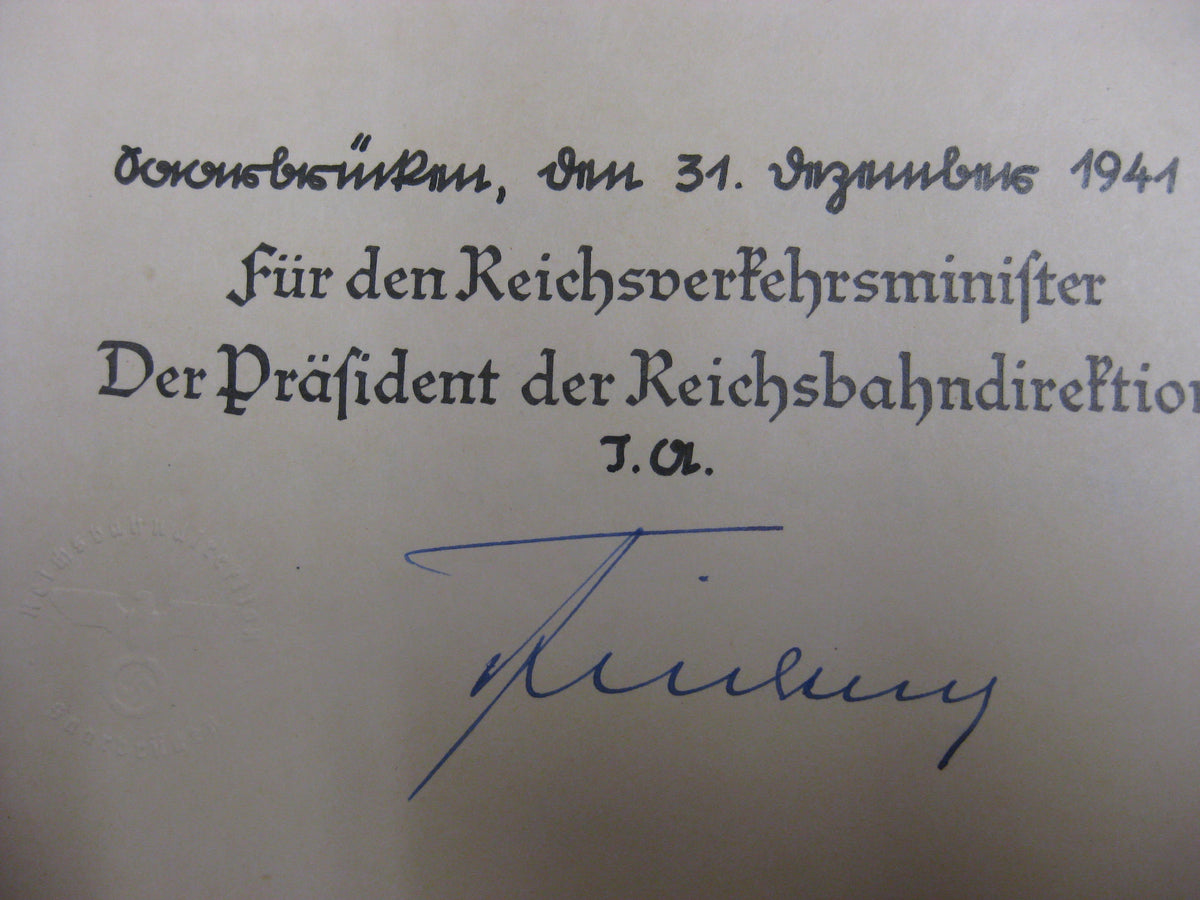 Saarbrücken, den 31. Dezember 1941
Für den Reichsverkehrsminiſter
Der Präſident der Reichsbahndirektion
I.A.
Reichsbahndirektion
Saarbrücken